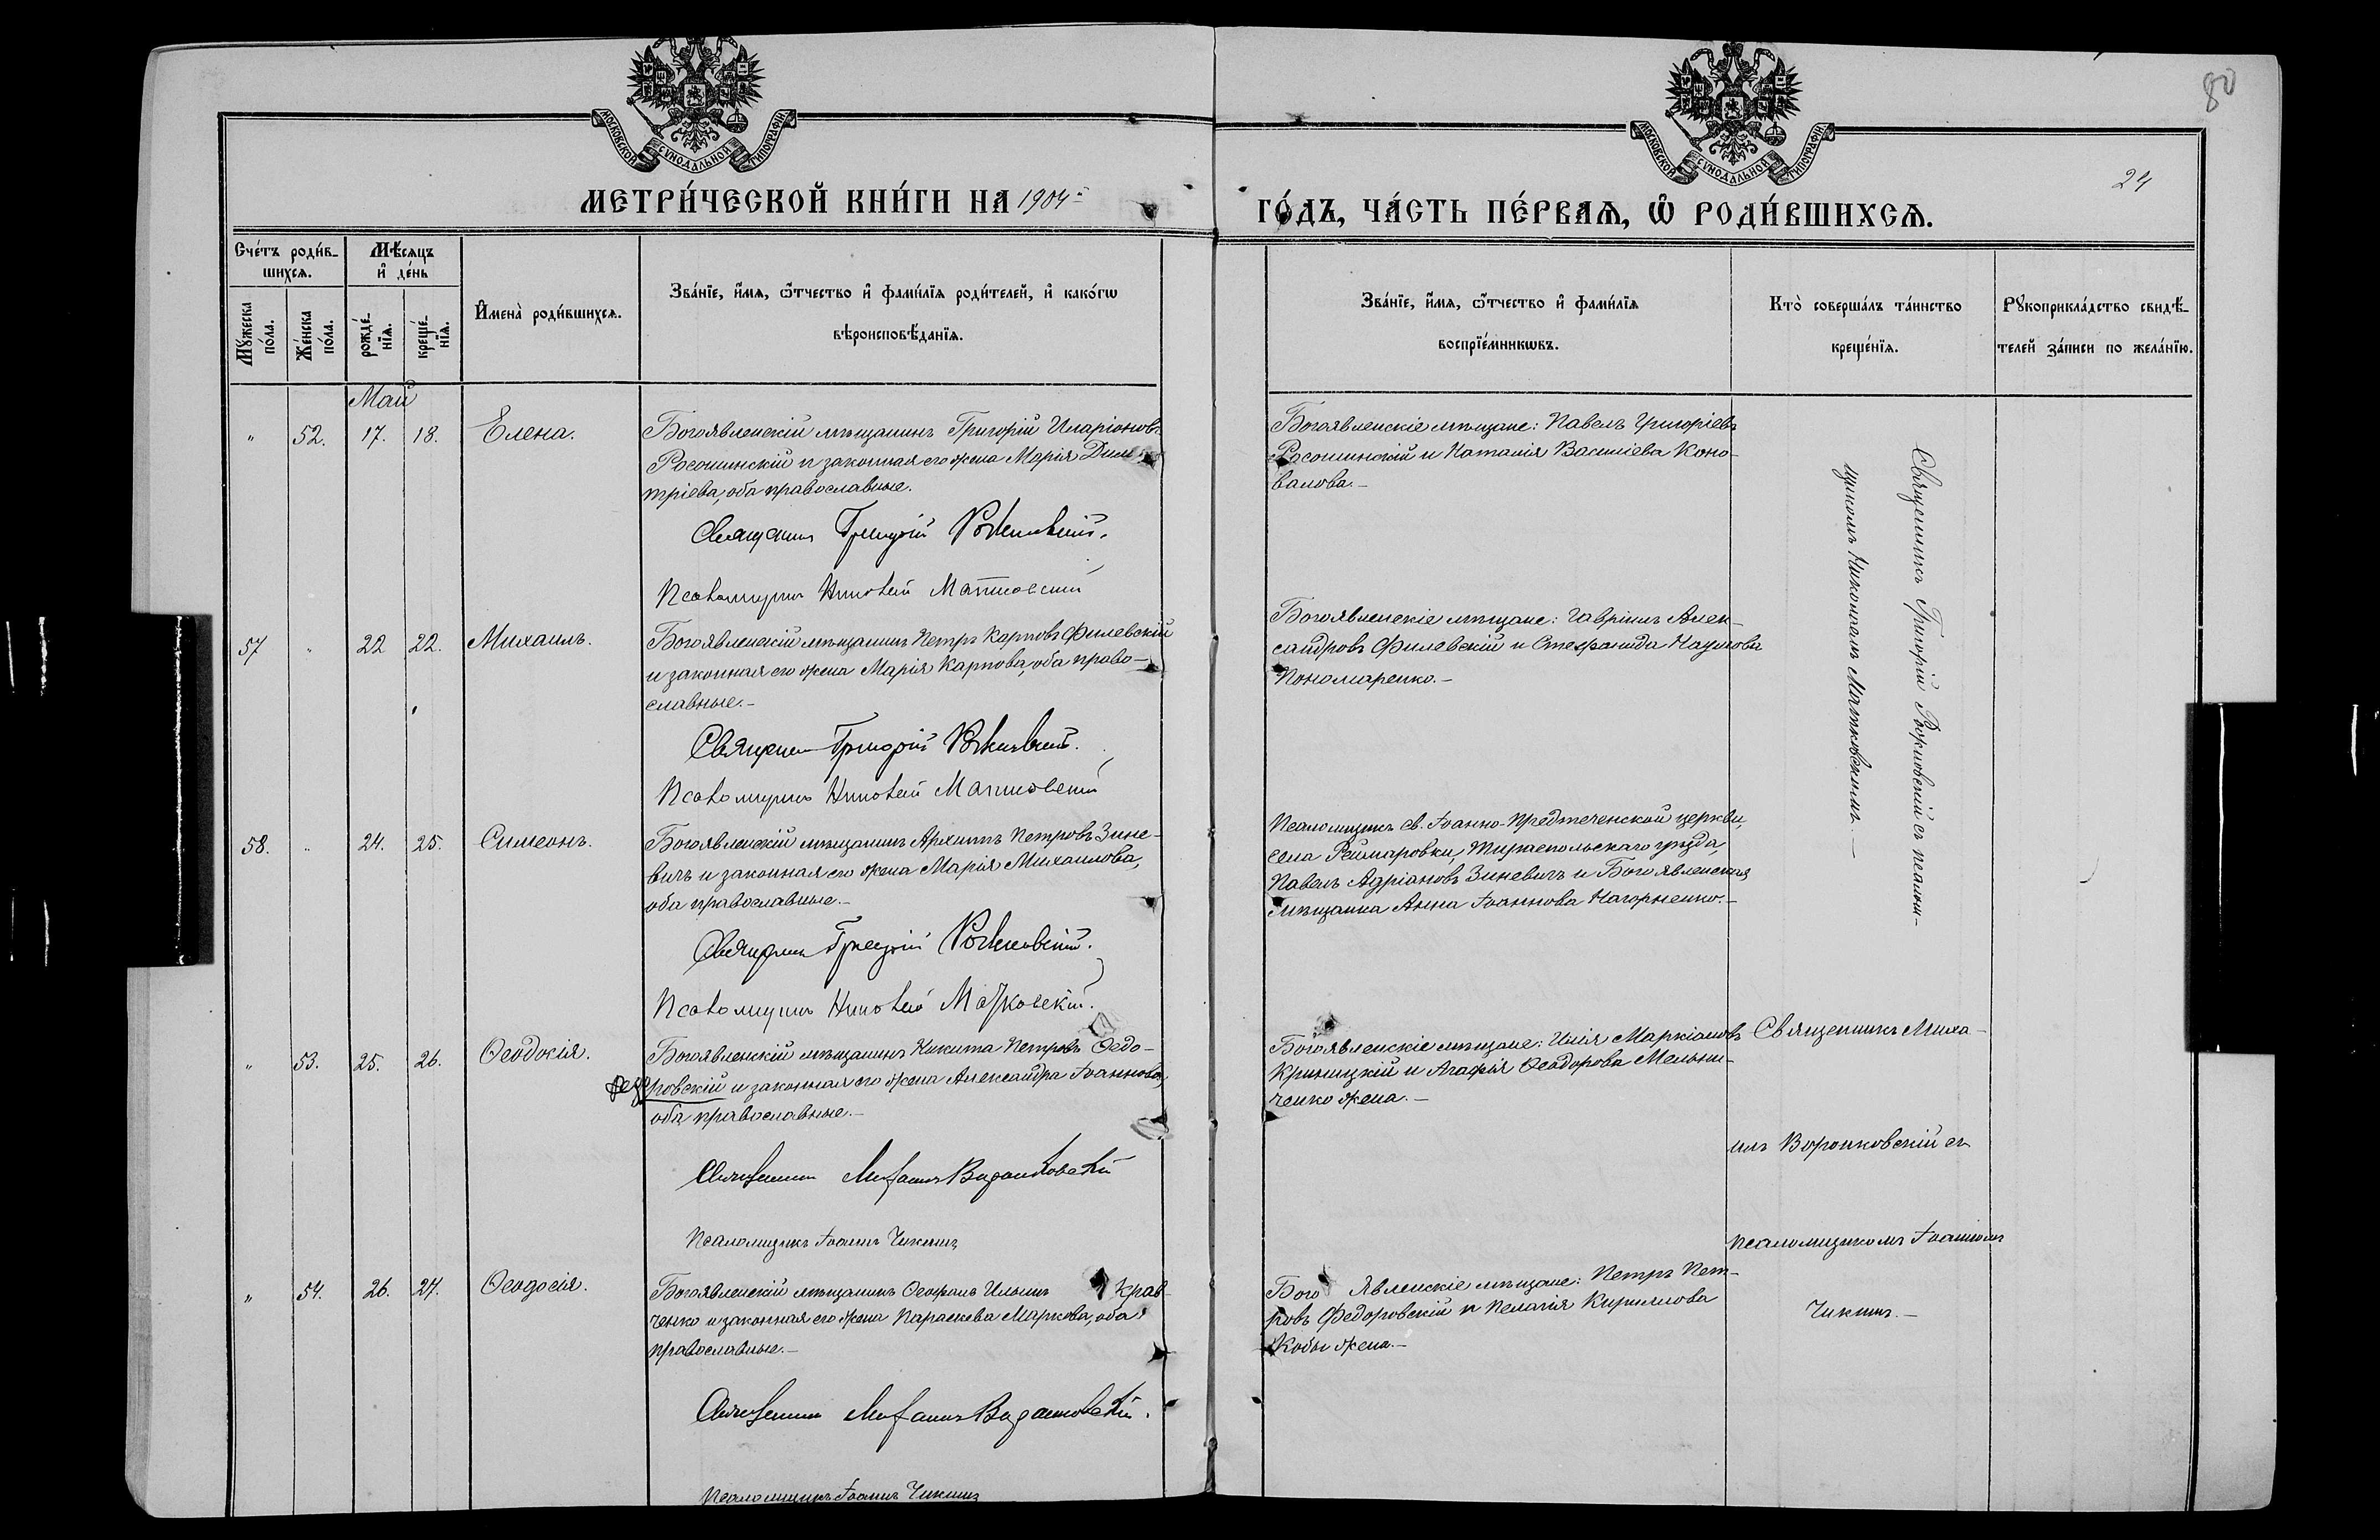 80
МОСКОВСКОЙ СУНОДАЛЬНОЙ ТИПОГРАФІИ
МОСКОВСКОЙ СУНОДАЛЬНОЙ ТИПОГРАФІИ
24
МЕТРИ́ЧЕСКОЙ КНИ́ГИ НА 1904й
ГО́ДЪ, ЧА́СТЬ ПЕ́РВАѦ, Ѡ РОДИ́ВШИХСѦ.
Сче́тъ роди́в-
шихсѧ.
Мѣ́сѧцъ
и҆ де́нь
Мꙋ́жеска
по́ла.
Же́нска
по́ла.
рожде́-
нїѧ.
креще́-
нїѧ.
И҆мена̀ роди́вшихсѧ.
Зва́нїе, и҆́мѧ, ѻ҆́тчество и҆ фами́лїѧ роди́телей, и҆ како́гѡ
вѣроисповѣ́данїѧ.
Зва́нїе, и҆́мѧ, ѻ҆́тчество и҆ фами́лїѧ
воспрїе́мникѡвъ.
Кто̀ соверша́лъ та́инство
креще́нїѧ.
Рꙋкоприкла́дство свидѣ́-
телей за́писи по жела́нїю.
Май
" 52. 17. 18. Елена.
Богоявленскій мѣщанинъ Григорій Иларіоновъ
Росошинскій и законная его жена Марія Дими-
тріева, оба православные.
Священникъ Григорій
Псаломщикъ Николай Матковскій
Богоявленскіе мѣщане: Павелъ Григоріевъ
Росошинскій и Наталія Василіева Коно-
валова.-
57 " 22 22. Михаилъ.
Богоявленскій мѣщанинъ Петръ Карповъ Филевскій
и законная его жена Марія Карпова, оба право-
славные.-
Священникъ Григорій
Псаломщикъ Николай Матковскій
Богоявленскіе мѣщане: Гавріилъ Алек-
сандровъ Филевскій и Стефанида Наумова
Пономаренко.-
58. " 24. 25. Симеонъ.
Богоявленскій мѣщанинъ Архиппъ Петровъ Зине-
вичъ и законная его жена Марія Михаилова,
оба православные.-
Священникъ Григорій
Псаломщикъ Николай Матковскій.
Псаломщикъ св. Іоанно-Предтеченской церкви,
села Реймаровки, Тираспольскаго уѣзда,
Павелъ Адріановъ Зиневичъ и Богоявленская
мѣщанка Анна Іоаннова Нагорненко.-
Священникъ Григорій съ псалом-
щикомъ Николаемъ Матковскимъ.-
" 53. 25. 26. Ѳеодосія.
Богоявленскій мѣщанинъ Никита Петровъ Ѳедо-
ровскій и законная его жена Александра Іоаннова,
оба православные.-
Священникъ Михаилъ Воронковскій
Псаломщикъ Іоаннъ Чикинъ
Богоявленскіе мѣщане: Илія Маркіановъ
Криницкій и Агафія Ѳеодорова Мельни-
ченко жена.-
Священникъ Миха-
илъ Воронковскій съ
псаломщикомъ Іоанномъ
Чикинъ.-
" 54. 26. 27. Ѳеодосія.
Богоявленскій мѣщанинъ Ѳеофанъ Ильинъ Крав-
ченко и законная его жена Параскева Маркова, оба
православные.-
Священникъ Михаилъ Воронковскій.
Псаломщикъ Іоаннъ Чикинъ
Богоявленскіе мѣщане: Петръ Пет-
ровъ Федоровскій и Пелагія Кириллова
Кобы жена.-